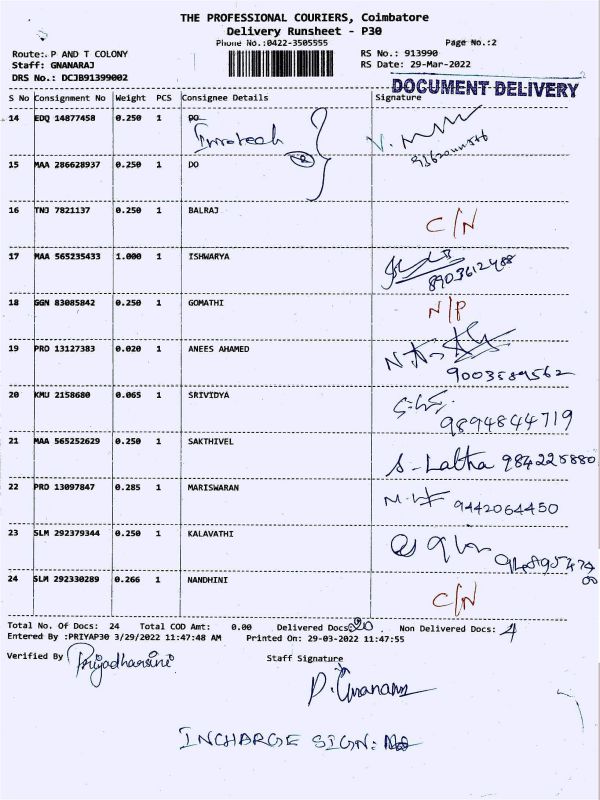 THE PROFESSIONAL COURIERS, Coimbatore
Delivery Runsheet - P30
Phone No.:0422-3505555 Page No.:2
Route:. P AND T COLONY RS No.: 913990
Staff: GNANARAJ RS Date: 29-Mar-2022
DRS No.: DCJB91399002
DOCUMENT DELIVERY
S No Consignment No Weight PCS Consignee Details Signature
14 EDQ 14877458 0.250 1
15 MAA 286628937 0.250 1 DO
16 TNJ 7821137 0.250 1 BALRAJ C/N
17 MAA 565235433 1.000 1 ISHWARYA
8903612488
18 GGN 83085842 0.250 1 GOMATHI N/P
19 PRO 13127383 0.020 1 ANEES AHAMED
9003589562
20 KMU 2158680 0.065 1 SRIVIDYA
9894844719
21 MAA 565252629 0.250 1 SAKTHIVEL S-Latha 984225880
22 PRO 13097847 0.285 1 MARISWARAN 9442064450
23 SLM 292379344 0.250 1 KALAVATHI
24 SLM 292330289 0.266 1 NANDHINI C/N
Total No. Of Docs: 24 Total COD Amt: 0.00 Delivered Docs: 20 Non Delivered Docs: 4
Entered By :PRIYAP30 3/29/2022 11:47:48 AM Printed On: 29-03-2022 11:47:55
Verified By Priyadharsini Staff Signature
P. Gnanaraj
INCHARGE SIGN: